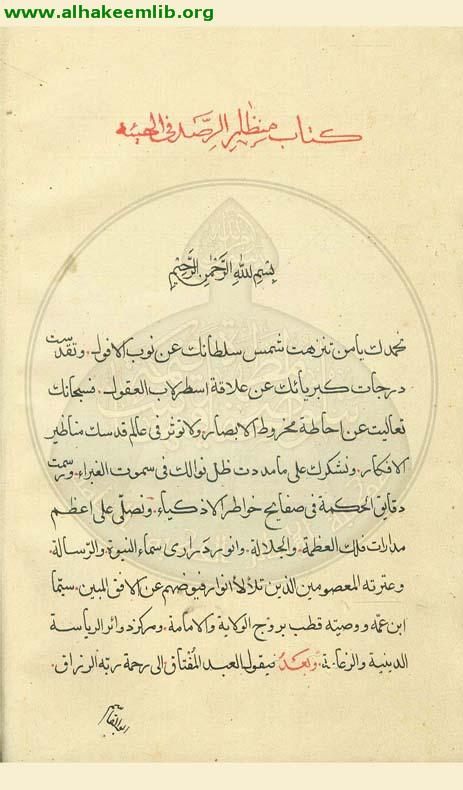 www.alhakeemlib.org
كتاب منظار الرصد فى الهيئة
بسم الله الرحمن الرحيم
نحمدك يا من تنزهت شمس سلطانك عن نوب الافول وتقدست
درجات كبريائك عن علاقة اسطرلاب العقول فسبحانك
تعاليت عن احاطة مخروط الابصار ولا توثر فى عالم قدسك مناظير
الافكار ونشكرك على ما مددت ظل نوالك فى سموت الغبراء ورسمت
دقايق الحكمة فى صفايح خواطر الاذكياء ونصلى على اعظم
مدارات فلك العظمة والجلالة وانور درارى سماء النبوة والرسالة
وعترته المعصومين الذين تلألأ انوار فيوضهم عن الافق المبين سيما
ابن عمه ووصيه قطب بروج الولاية والامامة ومركز دوائر الرياسة
الدينية والزعامة وبعد فيقول العبد المفتاق الى رحمة ربه الرزاق